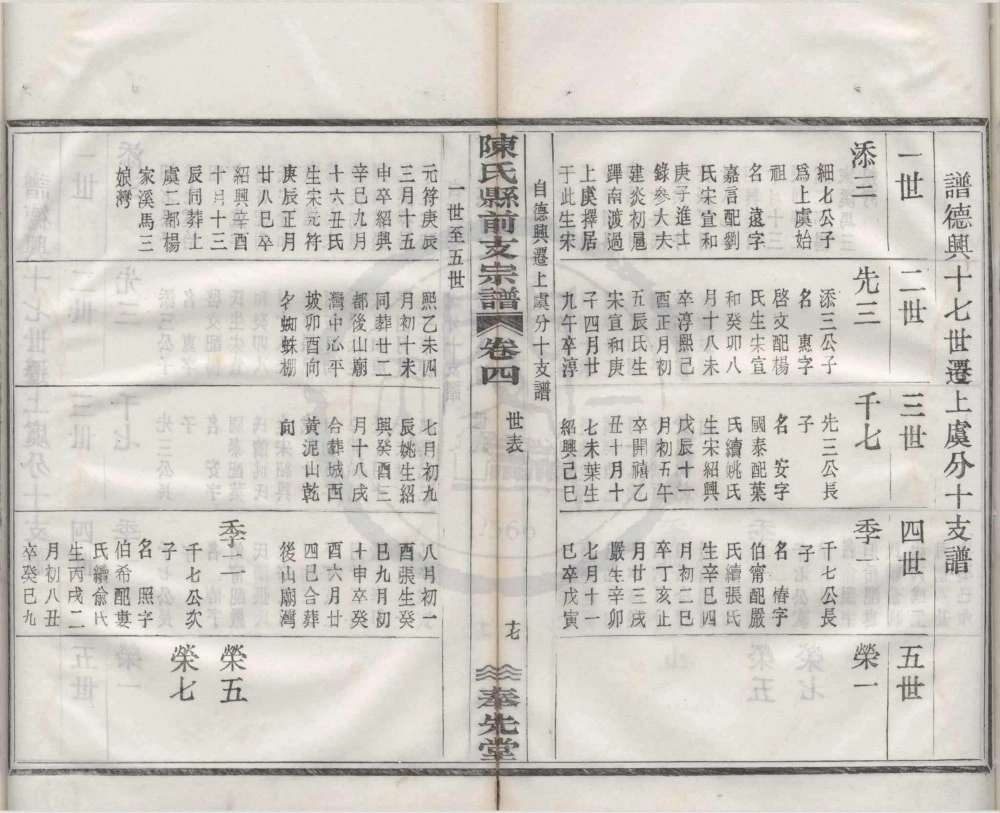 譜德興十七世遷上虞分十支譜
一世
二世
三世
四世
五世
添三
細七公子
爲上虞始
祖
名 遠字
嘉言配劉
氏宋宣和
庚子進士
錄參大夫
建炎初扈
蹕南渡過
上虞擇居
于此生宋
先三
添三公子
名 惠字
啓文配楊
氏生宋宣
和癸卯八
月十八未
卒淳熙己
酉正月初
五辰氏生
宋宣和庚
子四月廿
九午卒淳
千七
先三公長
子
名 安字
國泰配葉
氏續姚氏
生宋紹興
戊辰十一
月初五午
卒開禧乙
丑十月十
七未葉生
紹興己巳
季一
千七公長
子
名 椿字
伯甯配嚴
氏續張氏
生辛巳四
月初二巳
卒丁亥正
月廿三戌
嚴生辛卯
七月十一
巳卒戊寅
榮一
自德興遷上虞分十支譜
世表
陳氏縣前支宗譜
卷四
十七
奉先堂
一世至五世
元符庚辰
三月十五
申卒紹興
辛巳九月
十六丑氏
生宋元符
庚辰正月
廿八巳卒
紹興辛酉
十月十三
辰同葬上
虞二都楊
家溪馬三
娘灣
熙乙未四
月初十未
同葬廿二
都後山廟
灣中心平
坡卯酉向
名蜘蛛棚
七月初九
辰姚生紹
興癸酉三
月十八戌
合葬城西
黃泥山乾
向
八月初一
酉張生癸
巳九月初
十申卒癸
酉六月廿
四巳合葬
後山廟灣
季二
千七公次
子
名 照字
伯希配婁
氏續俞氏
生丙戌二
月初八丑
卒癸巳九
榮五
榮七